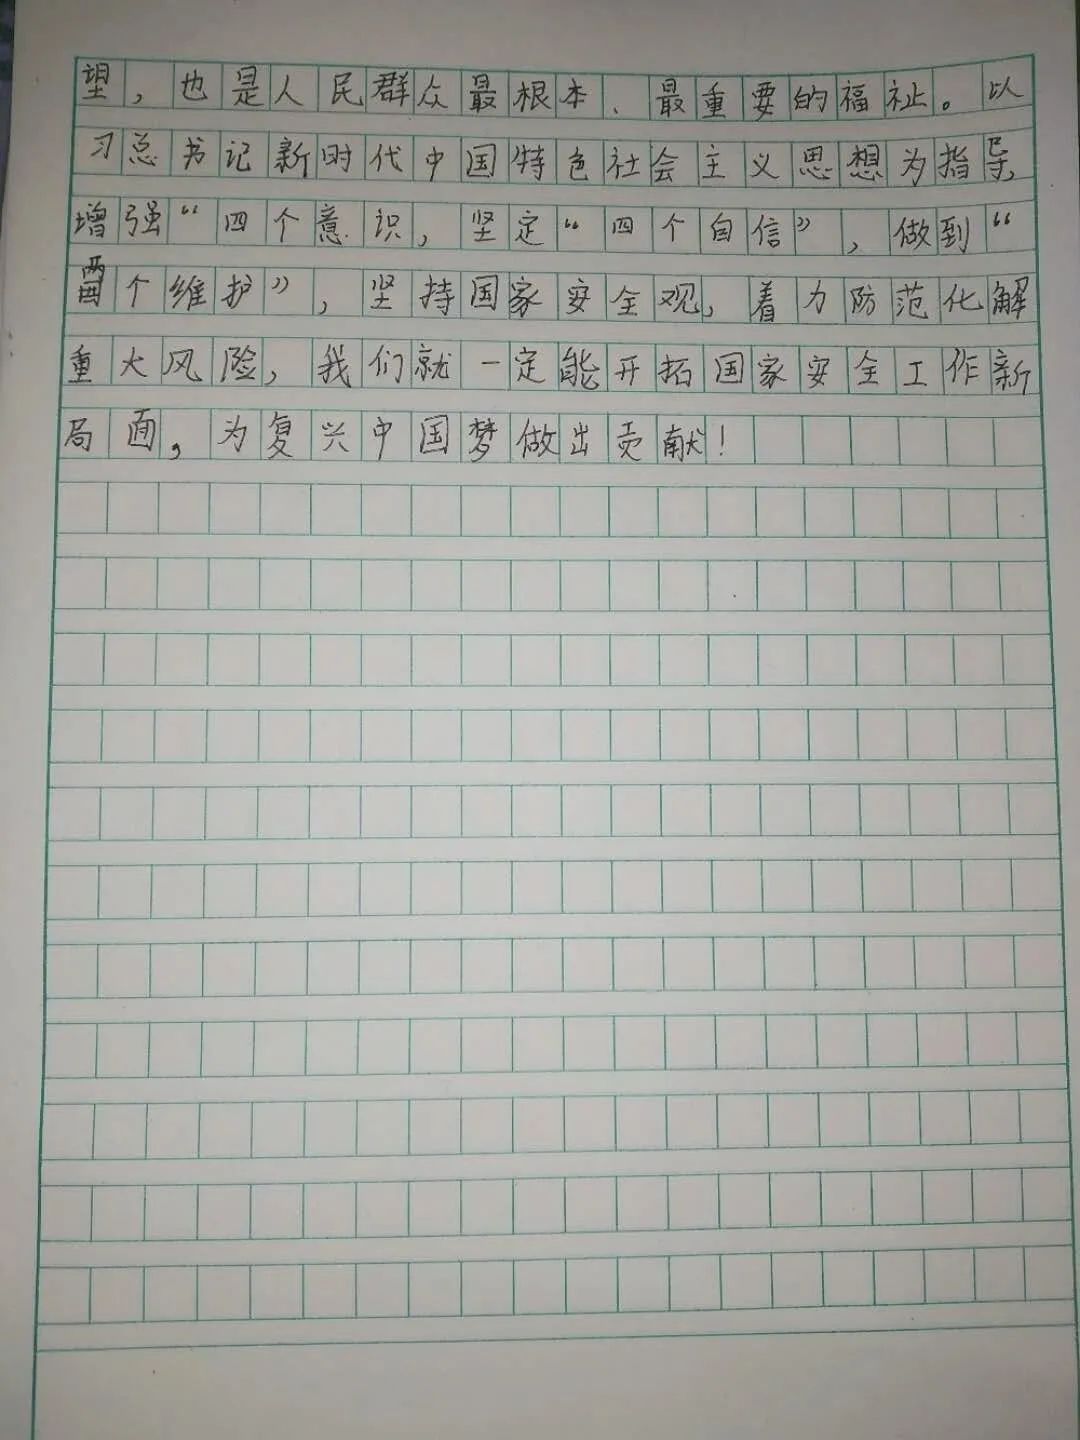 望，也是人民群众最根本、最重要的福祉。以
习总书记新时代中国特色社会主义思想为指导，
增强“四个意识，坚定“四个自信”，做到“
两个维护”，坚持国家安全观，着力防范化解
重大风险，我们就一定能开拓国家安全工作新
局面，为复兴中国梦做出贡献！